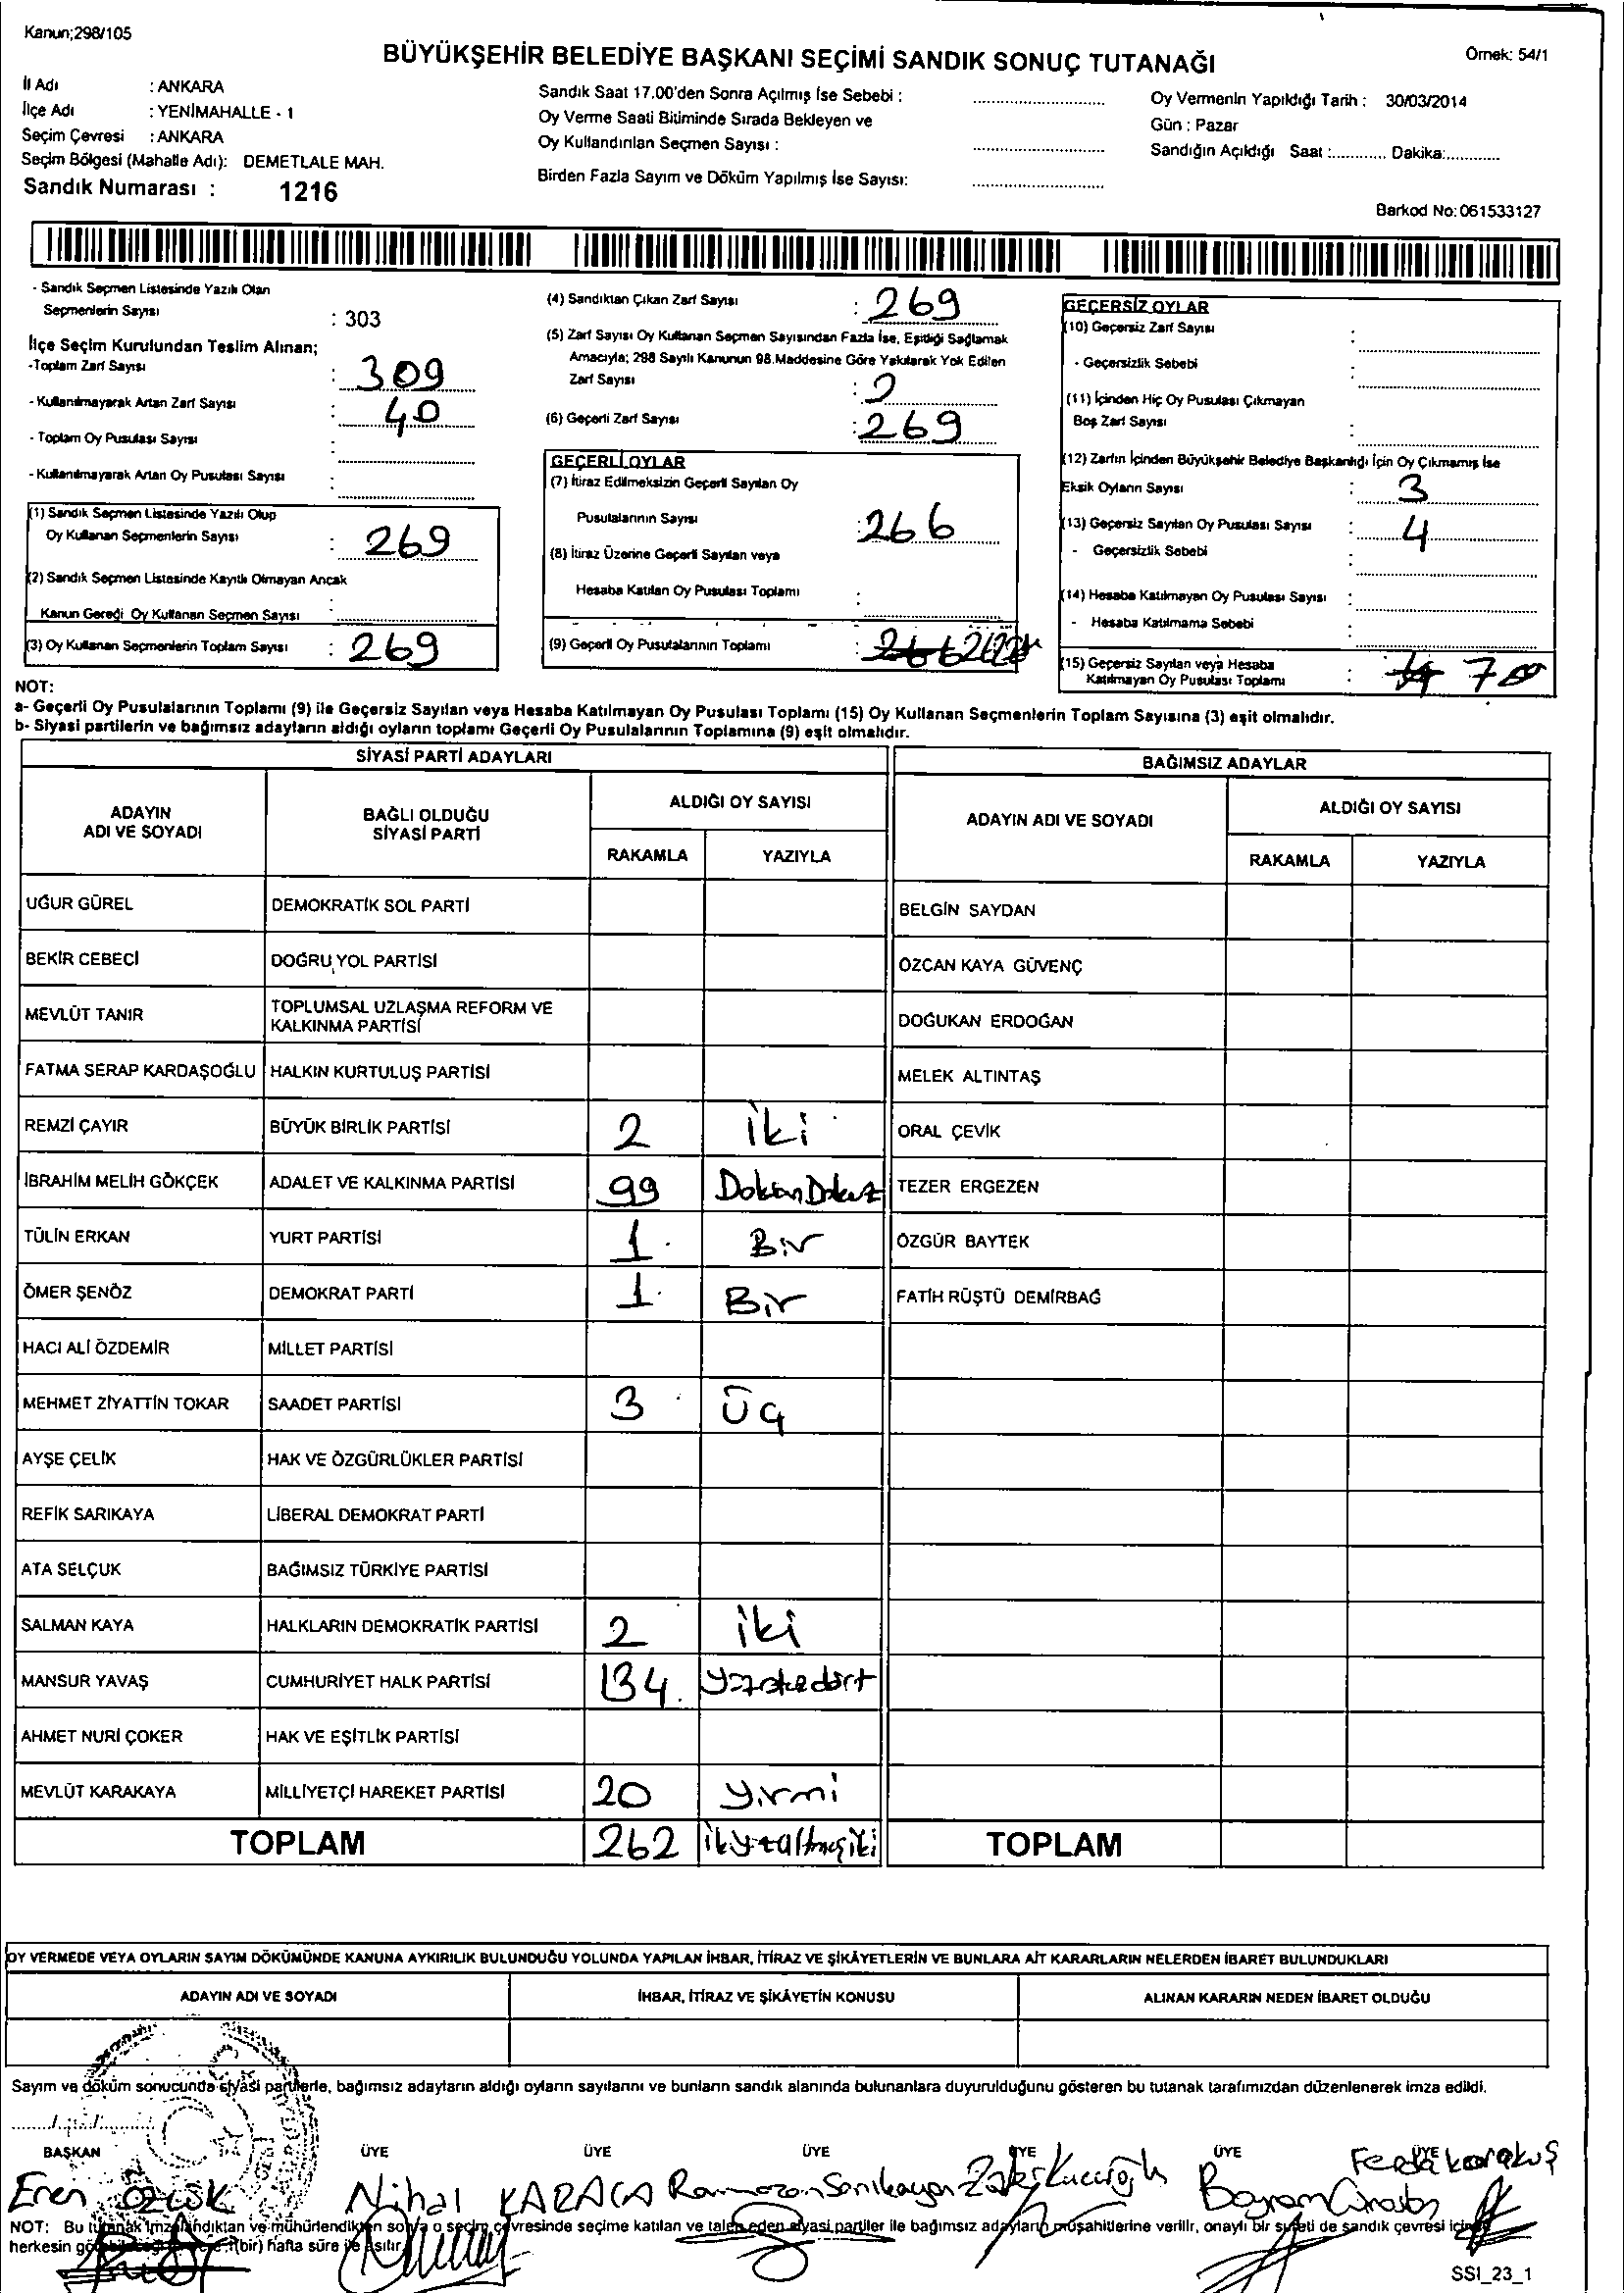 Kanun;298/105
BÜYÜKŞEHİR BELEDİYE BAŞKANI SEÇİMİ SANDIK SONUÇ TUTANAĞI
Örnek: 54/1
İl Adı : ANKARA
İlçe Adı : YENİMAHALLE - 1
Seçim Çevresi : ANKARA
Seçim Bölgesi (Mahalle Adı): DEMETLALE MAH.
Sandık Numarası : 1216
Sandık Saat 17.00'den Sonra Açılmış İse Sebebi :
Oy Verme Saati Bitiminde Sırada Bekleyen ve
Oy Kullandırılan Seçmen Sayısı :
Birden Fazla Sayım ve Döküm Yapılmış İse Sayısı:
Oy Vermenin Yapıldığı Tarih : 30/03/2014
Gün : Pazar
Sandığın Açıldığı Saat :............ Dakika:............
Barkod No: 061533127
- Sandık Seçmen Listesinde Yazılı Olan
Seçmenlerin Sayısı : 303
İlçe Seçim Kurulundan Teslim Alınan;
-Toplam Zarf Sayısı : 309
- Kullanılmayarak Artan Zarf Sayısı : 40
- Toplam Oy Pusulası Sayısı :
- Kullanılmayarak Artan Oy Pusulası Sayısı :
(1) Sandık Seçmen Listesinde Yazılı Olup
Oy Kullanan Seçmenlerin Sayısı : 269
(2) Sandık Seçmen Listesinde Kayıtlı Olmayan Ancak
Kanun Gereği Oy Kullanan Seçmen Sayısı :
(3) Oy Kullanan Seçmenlerin Toplam Sayısı : 269
(4) Sandıktan Çıkan Zarf Sayısı : 269
(5) Zarf Sayısı Oy Kullanan Seçmen Sayısından Fazla İse, Eşitliği Sağlamak
Amacıyla; 298 Sayılı Kanunun 98.Maddesine Göre Yakılarak Yok Edilen
Zarf Sayısı :
(6) Geçerli Zarf Sayısı : 269
GEÇERLİ OYLAR
(7) İtiraz Edilmeksizin Geçerli Sayılan Oy
Pusulalarının Sayısı : 266
(8) İtiraz Üzerine Geçerli Sayılan veya
Hesaba Katılan Oy Pusulası Toplamı :
(9) Geçerli Oy Pusulalarının Toplamı : 266 262
GEÇERSİZ OYLAR
(10) Geçersiz Zarf Sayısı :
- Geçersizlik Sebebi :
(11) İçinden Hiç Oy Pusulası Çıkmayan
Boş Zarf Sayısı :
(12) Zarfın İçinden Büyükşehir Belediye Başkanlığı İçin Oy Çıkmamış İse
Eksik Oyların Sayısı : 3
(13) Geçersiz Sayılan Oy Pusulası Sayısı : 4
- Geçersizlik Sebebi :
(14) Hesaba Katılmayan Oy Pusulası Sayısı :
- Hesaba Katılmama Sebebi :
(15) Geçersiz Sayılan veya Hesaba
Katılmayan Oy Pusulası Toplamı : 7
NOT:
a- Geçerli Oy Pusulalarının Toplamı (9) ile Geçersiz Sayılan veya Hesaba Katılmayan Oy Pusulası Toplamı (15) Oy Kullanan Seçmenlerin Toplam Sayısına (3) eşit olmalıdır.
b- Siyasi partilerin ve bağımsız adayların aldığı oyların toplamı Geçerli Oy Pusulalarının Toplamına (9) eşit olmalıdır.
SİYASİ PARTİ ADAYLARI
ADAYIN ADI VE SOYADI
BAĞLI OLDUĞU SİYASİ PARTİ
ALDIĞI OY SAYISI
RAKAMLA YAZIYLA
UĞUR GÜREL DEMOKRATİK SOL PARTİ
BEKİR CEBECİ DOĞRU YOL PARTİSİ
MEVLÜT TANIR TOPLUMSAL UZLAŞMA REFORM VE KALKINMA PARTİSİ
FATMA SERAP KARDAŞOĞLU HALKIN KURTULUŞ PARTİSİ
REMZİ ÇAYIR BÜYÜK BİRLİK PARTİSİ 2 İki
İBRAHİM MELİH GÖKÇEK ADALET VE KALKINMA PARTİSİ 99 Doksan Dokuz
TÜLİN ERKAN YURT PARTİSİ 1 Bir
ÖMER ŞENÖZ DEMOKRAT PARTİ 1 Bir
HACI ALİ ÖZDEMİR MİLLET PARTİSİ
MEHMET ZİYATTİN TOKAR SAADET PARTİSİ 3 Üç
AYŞE ÇELİK HAK VE ÖZGÜRLÜKLER PARTİSİ
REFİK SARIKAYA LİBERAL DEMOKRAT PARTİ
ATA SELÇUK BAĞIMSIZ TÜRKİYE PARTİSİ
SALMAN KAYA HALKLARIN DEMOKRATİK PARTİSİ 2 iki
MANSUR YAVAŞ CUMHURİYET HALK PARTİSİ 134
AHMET NURİ ÇOKER HAK VE EŞİTLİK PARTİSİ
MEVLÜT KARAKAYA MİLLİYETÇİ HAREKET PARTİSİ 20 Yirmi
TOPLAM 262
BAĞIMSIZ ADAYLAR
ADAYIN ADI VE SOYADI
ALDIĞI OY SAYISI
RAKAMLA YAZIYLA
BELGİN SAYDAN
ÖZCAN KAYA GÜVENÇ
DOĞUKAN ERDOĞAN
MELEK ALTINTAŞ
ORAL ÇEVİK
TEZER ERGEZEN
ÖZGÜR BAYTEK
FATİH RÜŞTÜ DEMİRBAĞ
TOPLAM
OY VERMEDE VEYA OYLARIN SAYIM DÖKÜMÜNDE KANUNA AYKIRILIK BULUNDUĞU YOLUNDA YAPILAN İHBAR, İTİRAZ VE ŞİKÂYETLERİN VE BUNLARA AİT KARARLARIN NELERDEN İBARET BULUNDUKLARI
ADAYIN ADI VE SOYADI
İHBAR, İTİRAZ VE ŞİKÂYETİN KONUSU
ALINAN KARARIN NEDEN İBARET OLDUĞU
Sayım ve döküm sonucunda siyasi partilerle, bağımsız adayların aldığı oyların sayılarını ve bunların sandık alanında bulunanlara duyurulduğunu gösteren bu tutanak tarafımızdan düzenlenerek imza edildi.
BAŞKAN ÜYE ÜYE ÜYE ÜYE ÜYE ÜYE
Eren Nihal KARACA Ramazan Sarıkaya Bayram Ferda Karakuş
NOT: Bu tutanak imzalandıktan ve mühürlendikten sonra o seçim çevresinde seçime katılan ve talep eden siyasi partiler ile bağımsız adayların müşahitlerine verilir, onaylı bir sureti de sandık çevresi içinde
herkesin (bir) hafta süre ile asılır.
SSI_23_1